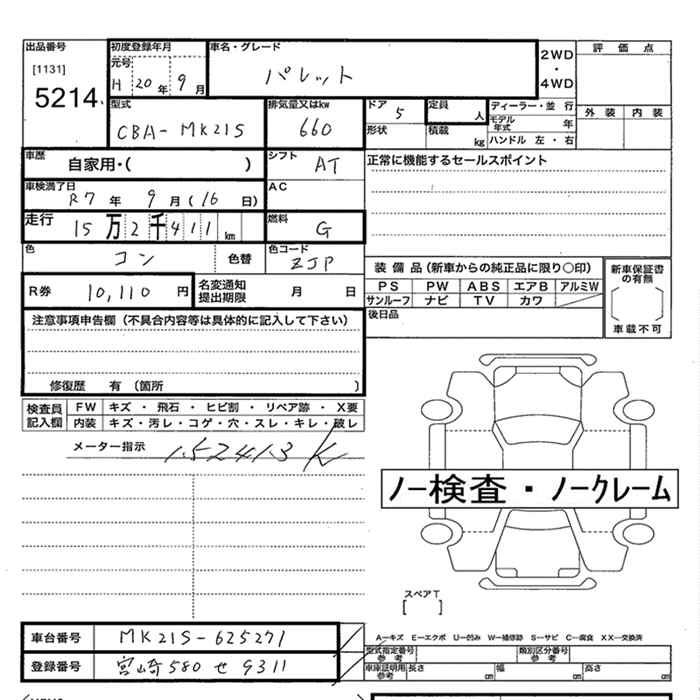 出品番号
[1131]
5214
初度登録年月
元号
H 20年 9月
車名・グレード
パレット
2WD
・
4WD
評価点
外装 内装
型式
CBA-MK21S
排気量又はkw
660
ドア 5
形状
定員 人
積載 kg
ディーラー・並行
モデル年式 年
ハンドル 左・右
車歴
自家用・( )
シフト AT
正常に機能するセールスポイント
車検満了日
R7年 9月(16日)
AC
走行
15万2千411km
燃料 G
色 コン 色替
色コード ZJP
装備品(新車からの純正品に限り○印)
PS PW ABS エアB アルミW
サンルーフ ナビ TV カワ
新車保証書の有無
[ ]
車載不可
R券 10,110円
名変通知提出期限 月 日
後日品
注意事項申告欄(不具合内容等は具体的に記入して下さい)
修復歴 有〔箇所 〕
検査員記入欄
FW キズ・飛石・ヒビ割・リペア跡・X要
内装 キズ・汚レ・コゲ・穴・スレ・キレ・破レ
メーター指示 152413K
ノー検査・ノークレーム
スペアT
[ ]
車台番号 MK21S-625271
登録番号 宮崎580せ9311
A―キズ E―エクボ U―凹み W―補修跡 S―サビ C―腐食 XX―交換済
型式指定番号 参考
類別区分番号 参考
車庫証明用 参考 長さ cm 幅 cm 高さ cm